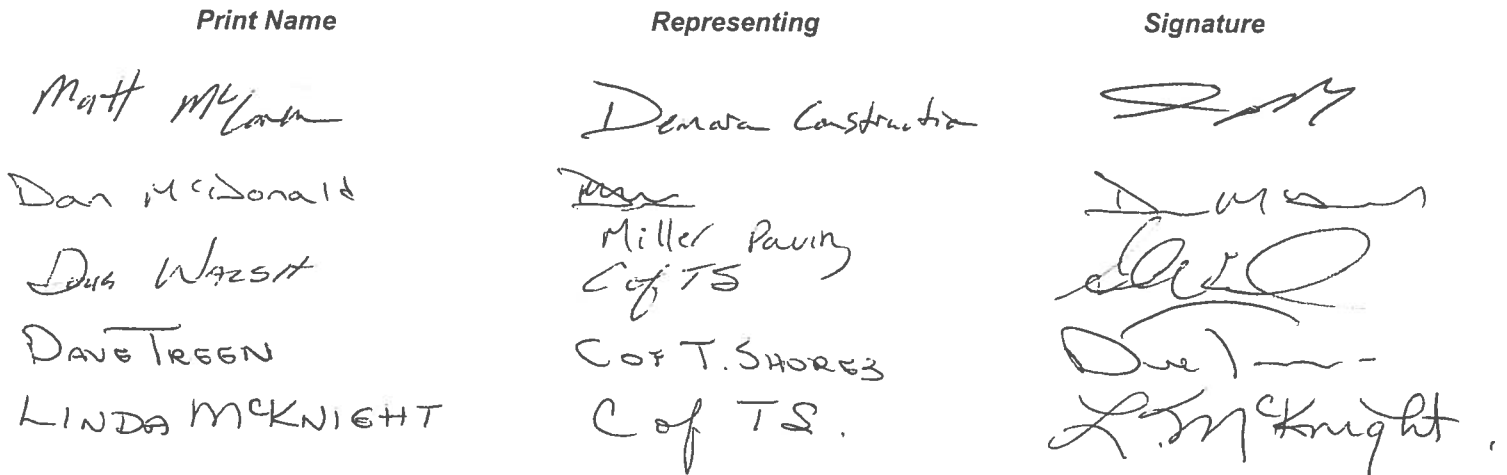 Print Name Representing Signature
Matt Demora Construction
Dan McDonald
Miller Paving
Doug Walsh C of TS
DAVE TREEN C OF T. SHORES
LINDA McKNIGHT C of T S. L. McKnight.